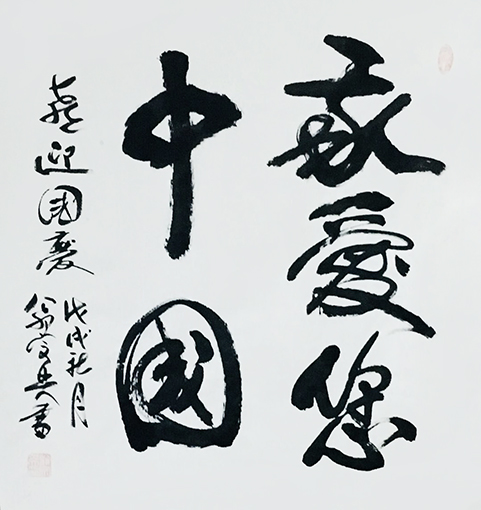 我爱您
中國
喜迎國慶
戊戌秋月
書